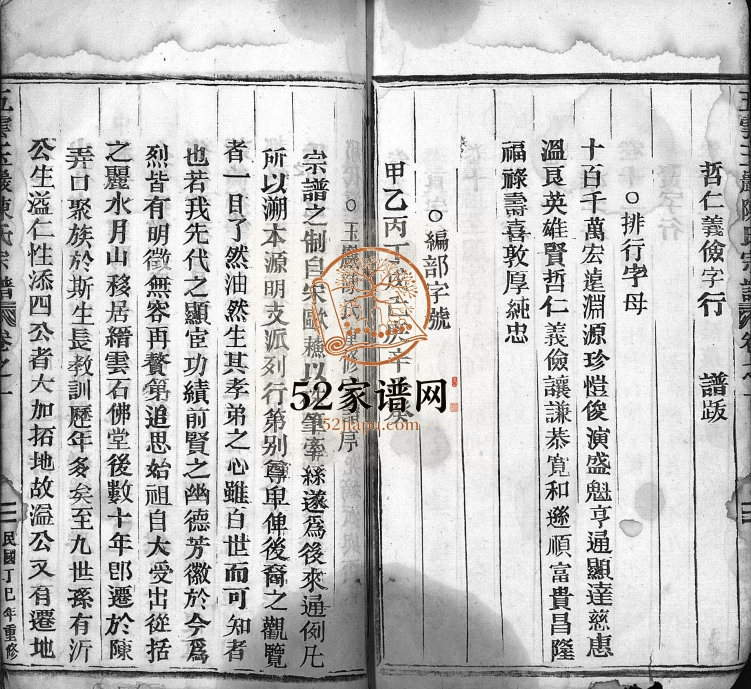 哲仁義儉字行　譜跋
○排行字母
十百千萬宏遠淵源珍愷俊演盛魁亨通顯達慈惠
溫良英雄賢哲仁義儉讓謙恭寬和遜順富貴昌隆
福祿壽喜敦厚純忠
○編部字號
甲乙丙丁
○玉巖陳氏重修 序
宗譜之制自宋歐 以 筆 絲遂爲後來通例凡
所以溯本源明支派列行第别尊卑俾後裔之觀覽
者一目了然油然生其孝弟之心雖百世而可知者
也若我先代之顯宦功績前賢之幽德芳徽於今爲
烈皆有明徵無容再贅第追思始祖自大受出從括
之麗水月山移居縉雲石佛堂後數十年卽遷於陳
弄口聚族於斯生長教訓歷年多矣至九世孫有沂
公生溢仁性添四公者大加拓地故溢公又有遷地
五雲玉巖陳氏宗譜 卷之一
民國丁巳年重修
52家谱网
52jiapu.com